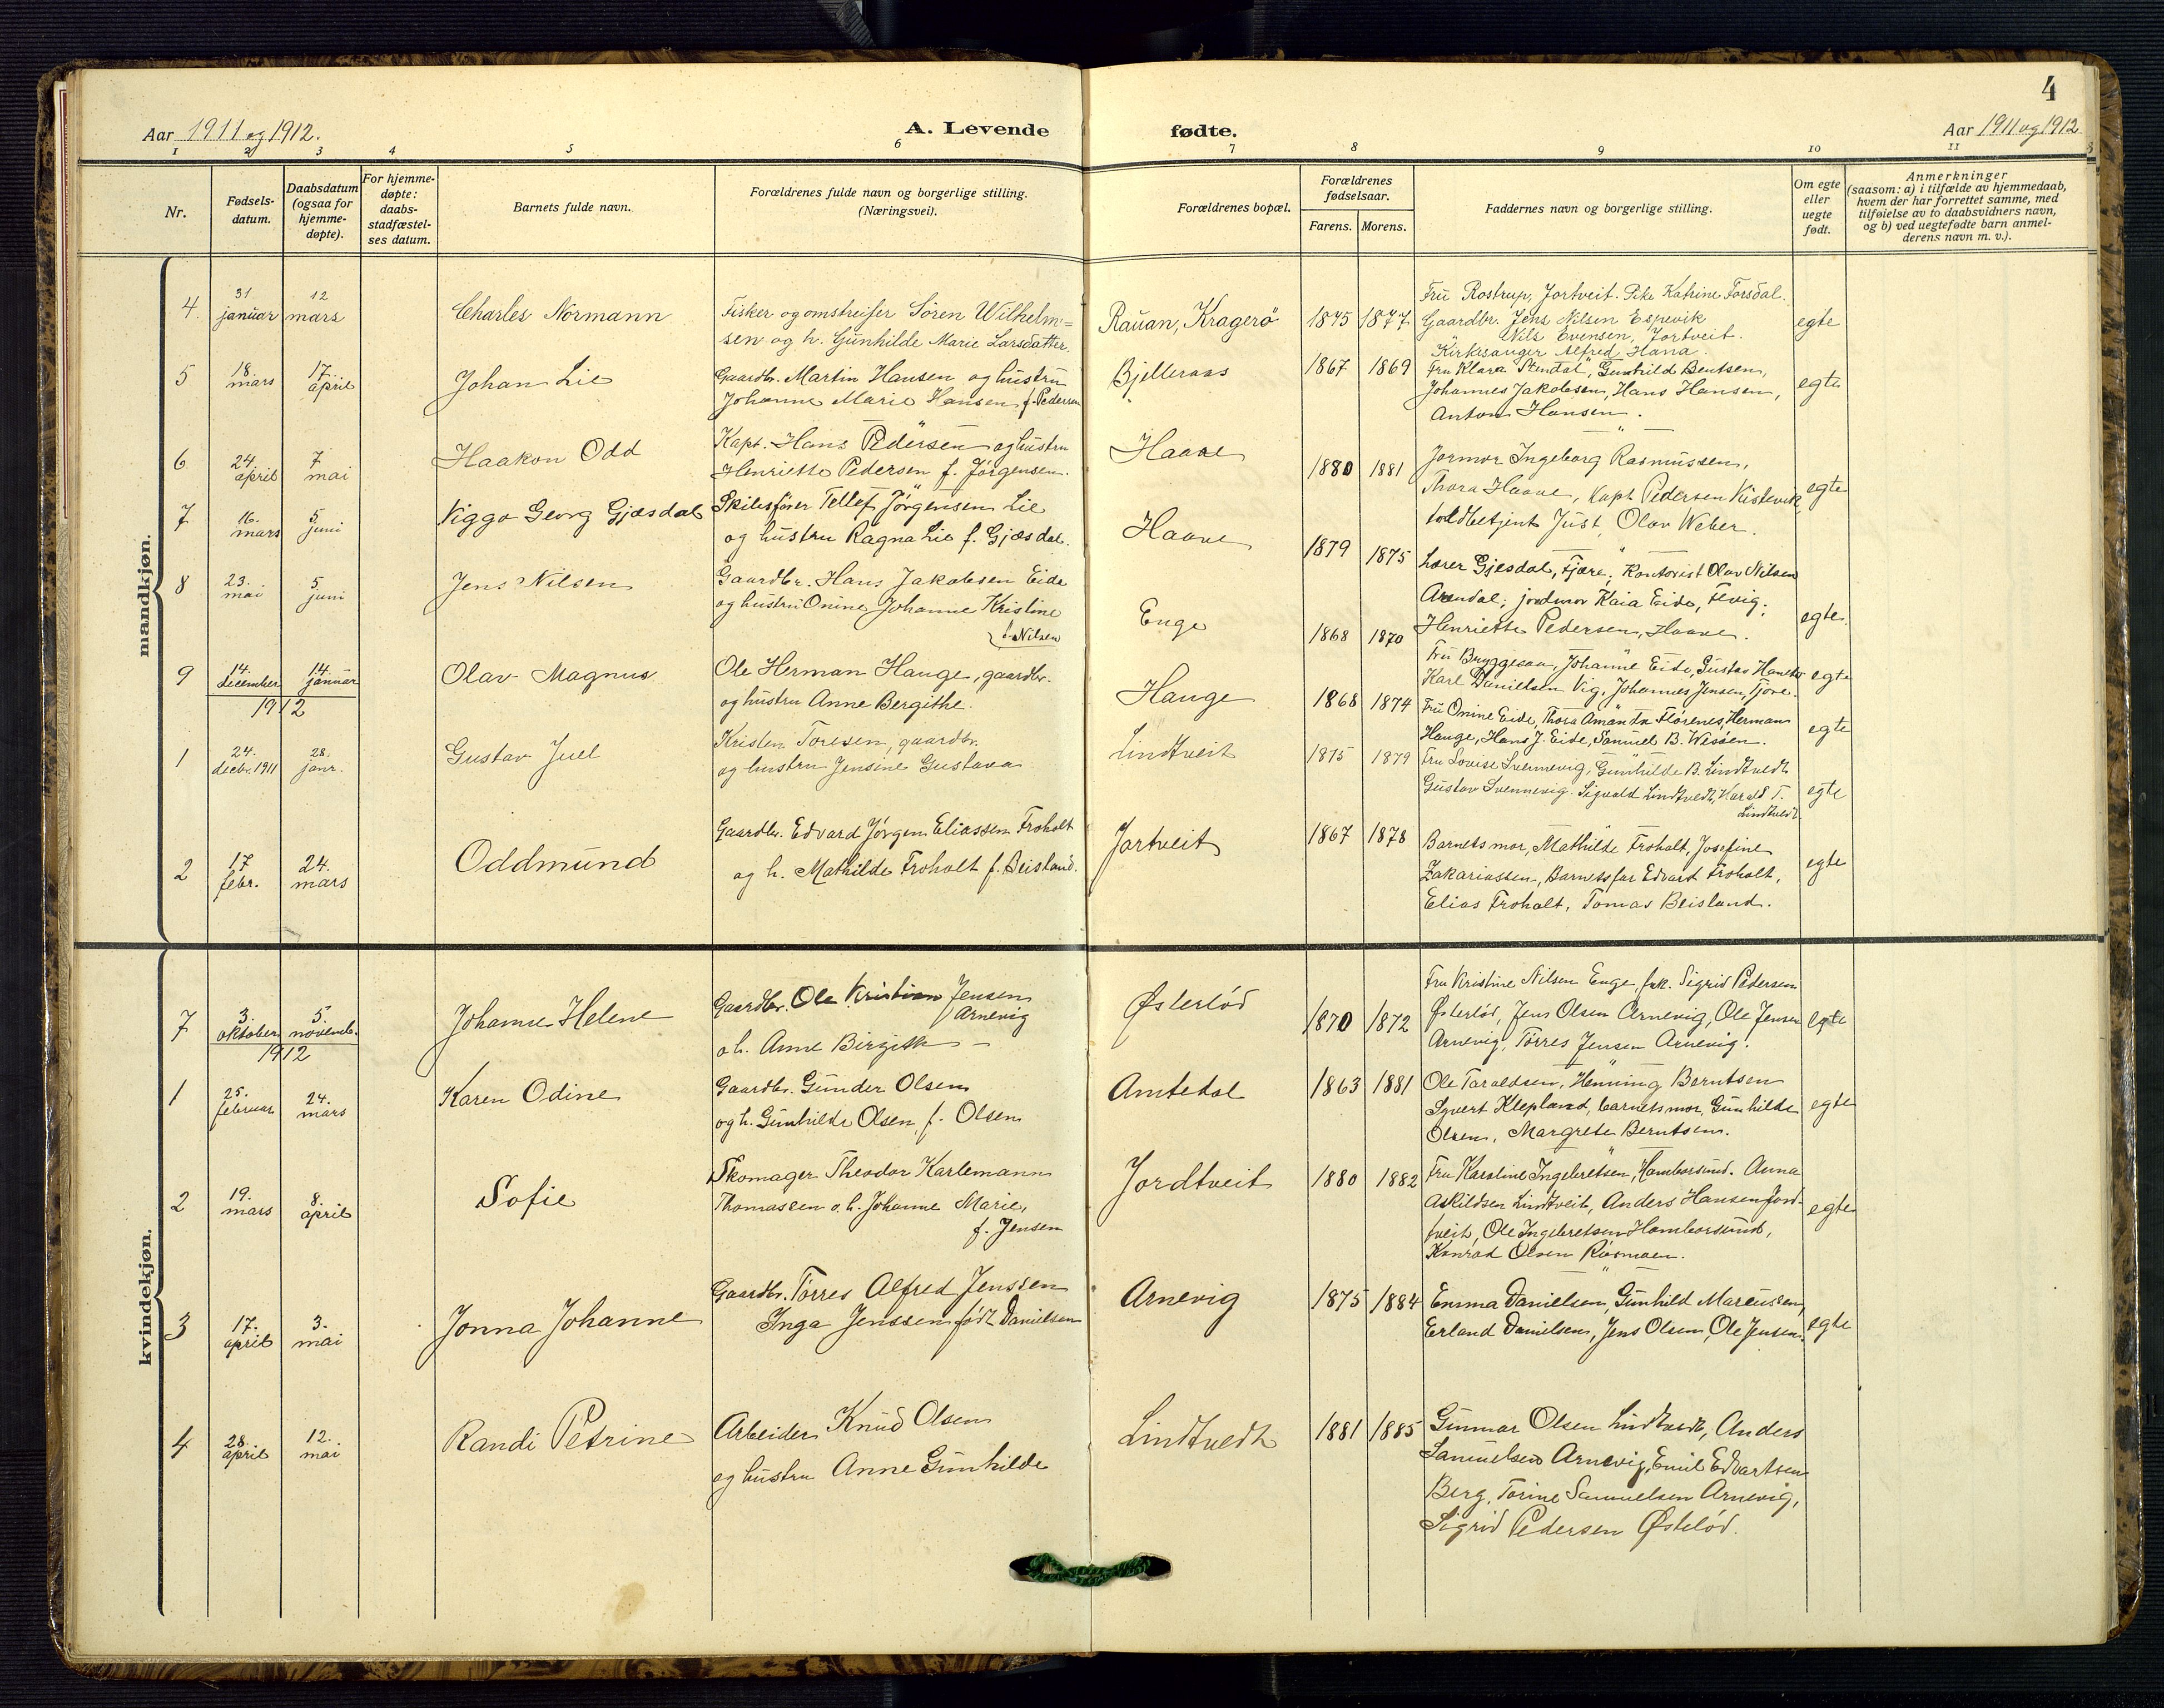 4
Aar 1911 og 1912.
A. Levende fødte.
Aar 1911 og 1912
1 2 3 4 5 6 7 8 9 10 11
Nr.
Fødsels-
datum.
Daabsdatum
(ogsaa for
hjemme-
døpte).
For hjemme-
døpte:
daabs-
stadfæstel-
ses datum.
Barnets fulde navn.
Forældrenes fulde navn og borgerlige stilling.
(Næringsvei).
Forældrenes bopæl.
Forældrenes
fødselsaar.
Farens. Morens.
Faddernes navn og borgerlige stilling.
Om egte
eller
uegte
født.
Anmerkninger
(saasom: a) i tilfælde av hjemmedaab,
hvem der har forrettet samme, med
tilføielse av to daabsvidners navn,
og b) ved uegtefødte barn anmel-
derens navn m. v.).
mandkjøn.
4. 31 januar 12 mars Charles Normann
Fisker og omstreifer Søren Wilhelm=
sen og h. Gunhilde Marie Larsdatter.
Rauan, Kragerø 1875 1877
Fru Rostrup, Jortveit. Pike Katrine Forsdal.
Gaardbr. Jens Nilsen Espevik
" Nils Evensen, Jortveit.
Kirkesanger Alfred Hana.
egte
5 18. mars 17. april Johan Lie
Gaardbr. Martin Hansen og hustru
Johanne Marie Hansen f. Pedersen
Bjelleraas 1867 1869
Fru Klara Stendal, Gunhild Bentsen,
Johannes Jakobsen, Hans Hansen,
Anton Hansen.
egte
6 24. april 7 mai Haakon Odd
Kapt. Hans Pedersen og hustru
Henriette Pedersen f. Jørgensen.
Haave 1880 1881
Jormor Ingeborg Rasmussen,
Thora Haave, Kapt. Pedersen
toldbetjent Just, Olav Weber.
egte
7 16. mars 5. juni Viggo Georg Gjæsdal
Skibsfører Tellef Jørgensen Lie
og hustru Ragna Lie f. Gjæsdal.
Haave 1879 1875
Lærer Gjesdal, Fjære; Kontorist Olav Nilsen
Arendal; jordmor Kaia Eide, Fevig;
Henriette Pedersen, Haave.
egte.
8 23. mai 5. juni Jens Nilsen
Gaardbr. Hans Jakobsen Eide
og hustru Onine Johanne Kristine
f. Nilsen
Enge 1868 1870
Fru Bryggesaa, Johanne Eide, Gustav Hansen
Karl Danielsen Vig, Johannes Jensen, Fjære.
egte
9 14. december 14. januar Olav Magnus
Ole Herman Hauge, gaardbr.
og hustru Anne Bergithe.
Hauge 1868 1874
Fru Onine Eide, Thora Amanda Flørenes, Herman
Hauge, Hans J. Eide, Samuel B. Wesøen.
egte
1912
1 24. decbr. 1911 28. janr. Gustav Juel
Kristen Toresen, gaardbr.
og hustru Jensine Gustava
Lindtveit 1875 1879
Fru Lovise Svennevig, Gunhilde B. Lindtvedt
Gustav Svennevig. Sigvald Lindtvedt, Harald T.
Lindtvedt.
egte
2 17 febr. 24. mars Oddmund
Gaardbr. Edvard Jørgen Eliassen Froholt
og h. Mathilde Froholt f. Beisland.
Jortveit 1867 1878
Barnets mor, Mathilde Froholt, Josefine
Zakariassen, Barnets far Edvard Froholt,
Elias Froholt, Tomas Beisland.
egte
kvindekjøn.
7 3. oktober 5. novemb. Johanne Helene
Gaardbr. Ole Kristian Jensen
Arnevig
o. h. Anne Birgith —
Østerlød 1870 1872
Fru Kristine Nilsen Enge, frk. Sigrid Pedersen
Østerlød, Jens Olsen Arnevig, Ole Jensen
Arnevig, Tørres Jensen Arnevig.
egte
1912
1 25. februar 24. mars Karen Odine
Gaardbr. Gunder Olsen
og h. Gunhilde Olsen, f. Olsen
Amtedal 1863 1881
Ole Taraldsen, Henning Berntsen
Syvert Klepland, barnets mor, Gunhilde
Olsen, Margrete Berntsen.
egte
2 19. mars 8. april Sofie
Skomager Theodor Karlemann
Thomassen o. h. Johanne Marie,
f. Jensen
Jordtveit 1880 1882
Fru Karoline Ingebretsen, Homborsund. Anna
Askildsen Lindtveit, Anders Hansen Jord-
tveit, Ole Ingebretsen Homborsund,
Konrad Olsen
egte
3 17. april 3. mai Jonna Johanne
Gaardbr. Tørres Alfred Jenssen
Inga Jenssen født Danielsen
Arnevig 1875 1884
Emma Danielsen, Gunhild Marcussen,
Erland Danielsen, Jens Olsen, Ole Jensen.
egte
4 28. april 12. mai Randi Petrine
Arbeider Knud Olsen
og hustru Anne Gunhilde
Lindtvedt 1881 1885
Gunnar Olsen Lindtvedt, Anders
Samuelsen Arnevig, Emil Edvartsen
Berg, Torine Samuelsen Arnevig,
Sigrid Pedersen Østelød.